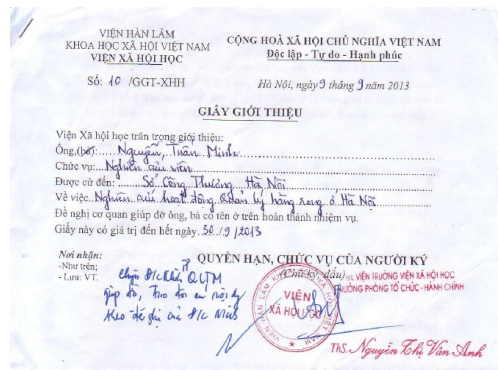 VIỆN HÀN LÂM
KHOA HỌC XÃ HỘI VIỆT NAM
VIỆN XÃ HỘI HỌC
Số: 10 /GGT-XHH
CỘNG HOÀ XÃ HỘI CHỦ NGHĨA VIỆT NAM
Độc lập - Tự do - Hạnh phúc
Hà Nội, ngày 9 tháng 9 năm 2013
GIẤY GIỚI THIỆU
Viện Xã hội học trân trọng giới thiệu:
Ông,(bà):....Nguyễn, Tuấn Minh
Chức vụ:..Nghiên cứu viên
Được cử đến: ......Sở Công Thương Hà Nội
Về việc: Nghiên cứu hoạt động Quản lý hàng rong ở Hà Nội
Đề nghị cơ quan giúp đỡ ông, bà có tên ở trên hoàn thành nhiệm vụ.
Giấy này có giá trị đến hết ngày 30./9/2013
Nơi nhận:
-Như trên;
- Lưu: VT.
QUYỀN HẠN, CHỨC VỤ CỦA NGƯỜI KÝ
(Chữ ký, dấu)
VIỆN TRƯỞNG VIỆN XÃ HỘI HỌC
TRƯỞNG PHÒNG TỔ CHỨC - HÀNH CHÍNH
VIỆN
XÃ HỘI HỌC
QLTM
giúp đỡ, trao đổi
ThS. Nguyễn Thị Vân Anh